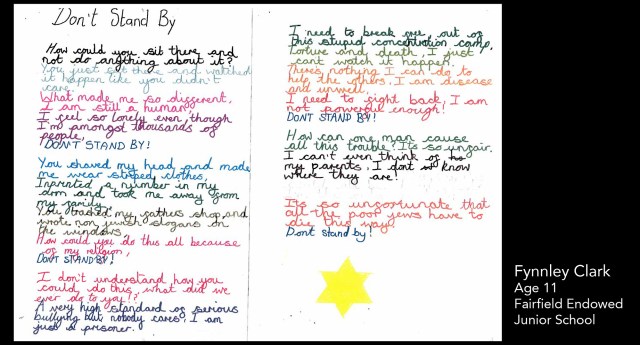 Don't Stand By
How could you sit there and
not do anything about it?
You just sat there and watched
it happen like you didn't
care.
What made me so different,
I am still a human,
I feel so lonely even though
I'm amongst thousands of
people,
DON'T STAND BY!
You shaved my head and made
me wear striped clothes,
Inprinted a number in my
arm and took me away from
my family.
You bashed my fathers shop and
wrote non jewish slogans on
the windows,
How could you do this all because
of my religion,
DON'T STAND BY!
I don't understand how you
could do this, what did we
ever do to you!?
A very high standard of serious
bullying but nobody cares, I am
just a prisoner.
I need to break out of
this stupid concentration camp,
Torture and death, I just
can't watch it happen.
Theres nothing I can do to
help the others, I am disease
and unwell.
I need to fight back, I am
not powerful enough!
DONT STAND BY!
How can one man cause
all this trouble? Its so unfair.
I can't even think of
my parents. I dont know
where they are!
Its so unfortunate that
all the poor jews have to
die this way!
Dont stand by!
Fynnley Clark
Age 11
Fairfield Endowed
Junior School